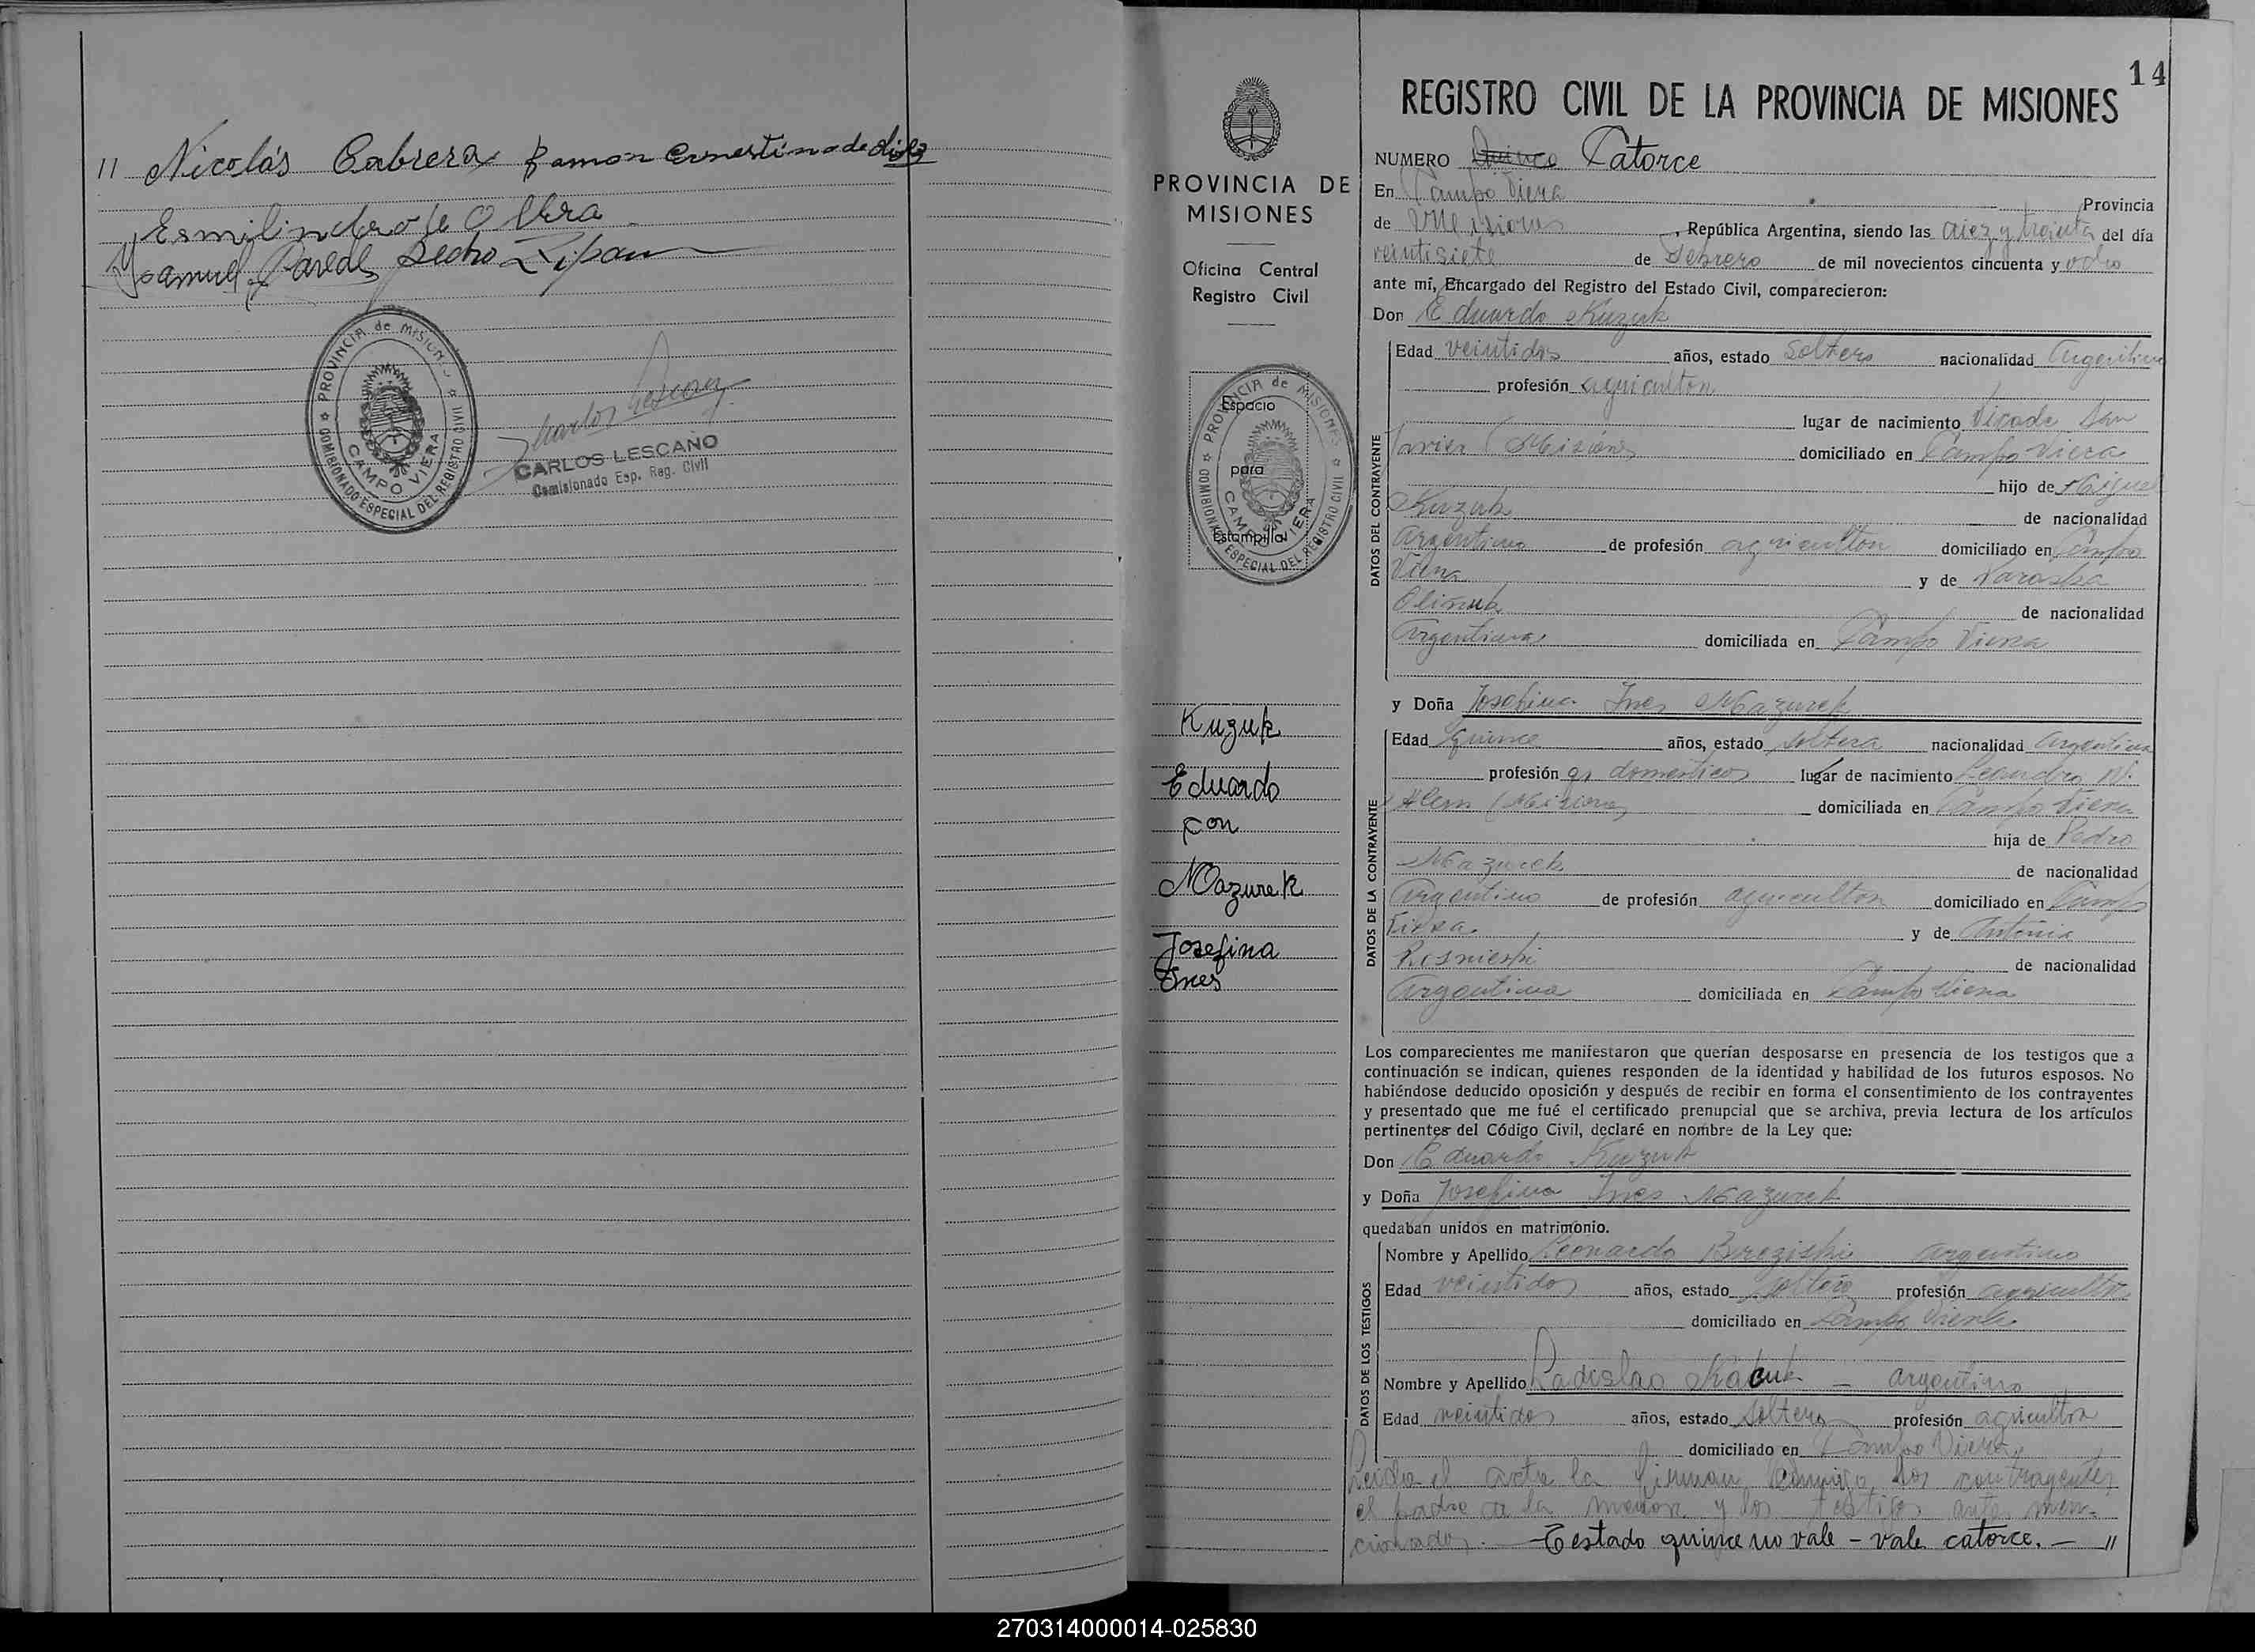 " Nicolás Cabrera Ramon Ernestino de
Esmilindro de Olvera
Ysamuel Paredes Pedro
PROVINCIA de MISIONES
CAMPO VIERA
COMISIONADO ESPECIAL DEL REGISTRO CIVIL
Carlos Lescano
CARLOS LESCANO
Comisionado Esp. Reg. Civil
PROVINCIA DE
MISIONES
Oficina Central
Registro Civil
PROVINCIA de MISIONES
Espacio
para
Estampilla
CAMPO VIERA
COMISIONADO ESPECIAL DEL REGISTRO CIVIL
Kuzuk
Eduardo
con
Mazurek
Josefina
Ines
14
REGISTRO CIVIL DE LA PROVINCIA DE MISIONES
NUMERO Quince Catorce
En Campo Viera Provincia
de Misiones, República Argentina, siendo las diez y treinta del día
veintisiete de Febrero de mil novecientos cincuenta y ocho
ante mí, Encargado del Registro del Estado Civil, comparecieron:
Don Eduardo Kuzuk
DATOS DEL CONTRAYENTE
Edad veintidos años, estado soltero nacionalidad Argentina
profesión agricultor
lugar de nacimiento Picada San
Javier (Misiones) domiciliado en Campo Viera
hijo de Miguel
Kuzuk de nacionalidad
Argentino de profesión agricultor domiciliado en Campo
Viera y de
de nacionalidad
Argentina domiciliada en Campo Viera
y Doña Josefina Ines Mazurek
DATOS DE LA CONTRAYENTE
Edad quince años, estado soltera nacionalidad Argentina
profesión qs domesticos lugar de nacimiento Leandro N.
Alem (Misiones) domiciliada en Campo Viera
hija de Pedro
Mazurek de nacionalidad
Argentino de profesión agricultor domiciliado en Campo
Viera y de Antonia
de nacionalidad
Argentina domiciliada en Campo Viera
Los comparecientes me manifestaron que querían desposarse en presencia de los testigos que a
continuación se indican, quienes responden de la identidad y habilidad de los futuros esposos. No
habiéndose deducido oposición y después de recibir en forma el consentimiento de los contrayentes
y presentado que me fué el certificado prenupcial que se archiva, previa lectura de los artículos
pertinentes del Código Civil, declaré en nombre de la Ley que:
Don Eduardo Kuzuk
y Doña Josefina Ines Mazurek
quedaban unidos en matrimonio.
DATOS DE LOS TESTIGOS
Nombre y Apellido Leonardo argentino
Edad veintidos años, estado soltero profesión agricultor
domiciliado en Campo Viera
Nombre y Apellido Ladislao - argentino
Edad veintidos años, estado soltero profesión agricultor
domiciliado en Campo Viera
Leida el acta la firman conmigo los contrayentes,
el padre de la menor y los testigos ante men-
cionados. — Testado quince no vale - vale catorce. — "
270314000014-025830